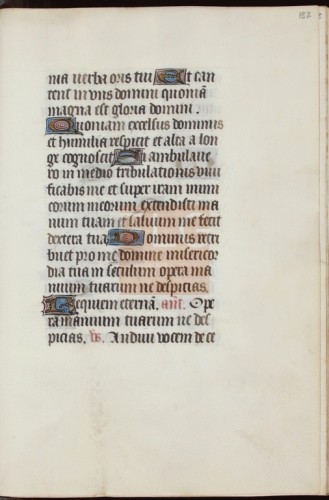 152
nia verba oris tui Et can
tent in viis domini quoniā
magna est gloria domini.
Quoniam excelsus dominus
et humilia respicit et alta a lon
ge cognoscit Si ambulave
ro in medio tribulationis vivi
ficabis me et super iram inimi
corum meorum extendisti ma
num tuam et salvum me fecit
dextera tua Dominus retri
buet pro me domine misericor
dia tua in seculum opera ma
nuum tuarum ne despicias.
Requiem eternā. anī. Ope
ra manuum tuarum ne des
picias. v̄s. Audivi vocem de ce